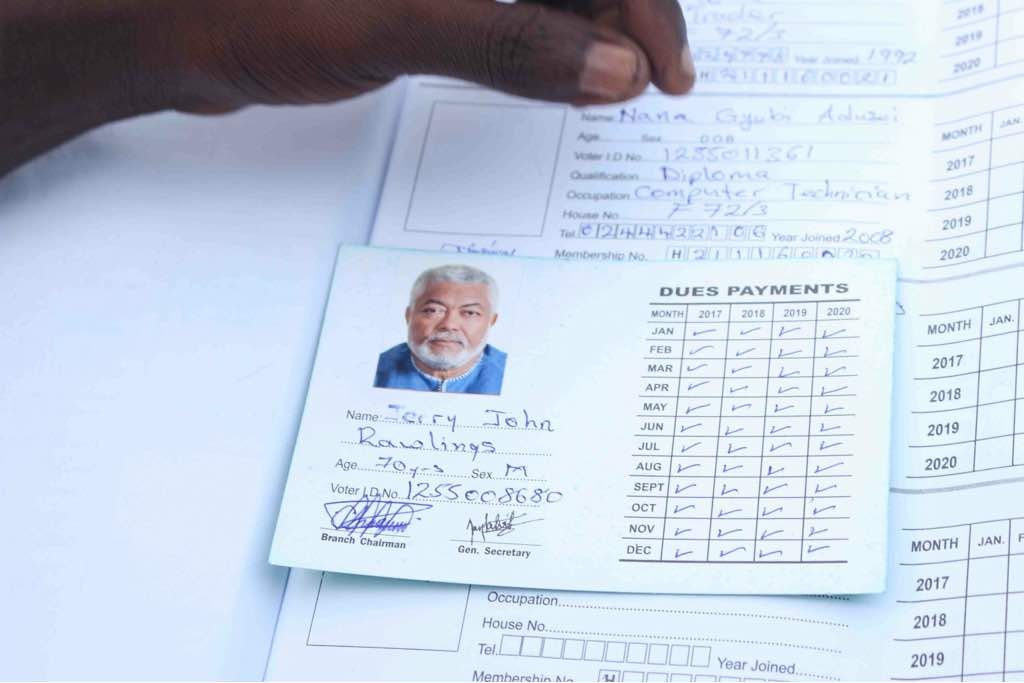 Trader
72/3
Year Joined 1992
2018
2019
2020
Name: Nana Gyebi Adusei
Age Sex 008
Voter I.D No. 1255011361
Qualification Diploma
Occupation Computer Technician
House No F 72/3
Tel. 0244422106 Year Joined 2008
Membership No. H
MONTH JAN.
2017
2018
2019
2020
DUES PAYMENTS
MONTH 2017 2018 2019 2020
JAN ✓ ✓ ✓ ✓
FEB ✓ ✓ ✓ ✓
MAR ✓ ✓ ✓ ✓
APR ✓ ✓ ✓ ✓
MAY ✓ ✓ ✓ ✓
JUN ✓ ✓ ✓ ✓
JUL ✓ ✓ ✓ ✓
AUG ✓ ✓ ✓ ✓
SEPT ✓ ✓ ✓ ✓
OCT ✓ ✓ ✓ ✓
NOV ✓ ✓ ✓ ✓
DEC ✓ ✓ ✓ ✓
Name: Jerry John
Rawlings
Age 70yrs Sex M
Voter I.D No. 1255008680
Branch Chairman
Gen. Secretary
MONTH JAN.
2017
2018
2019
2020
Occupation
House No.
Tel. Year Joined
Membership No. H
MONTH JAN. F
2017
2018
2019